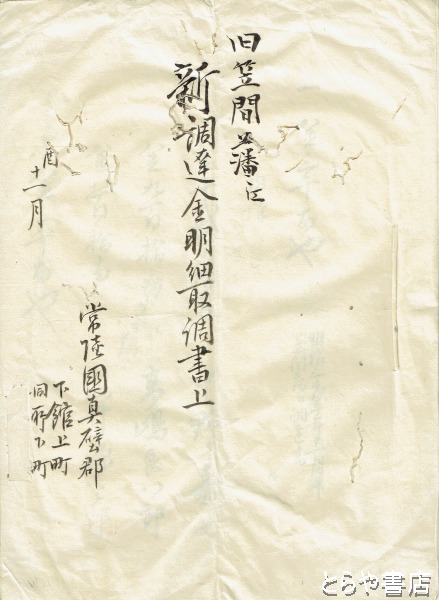 旧笠間藩江
新調達金明細取調書上
酉十一月
常陸國真壁郡
下館上町
同所下町
とらや書店